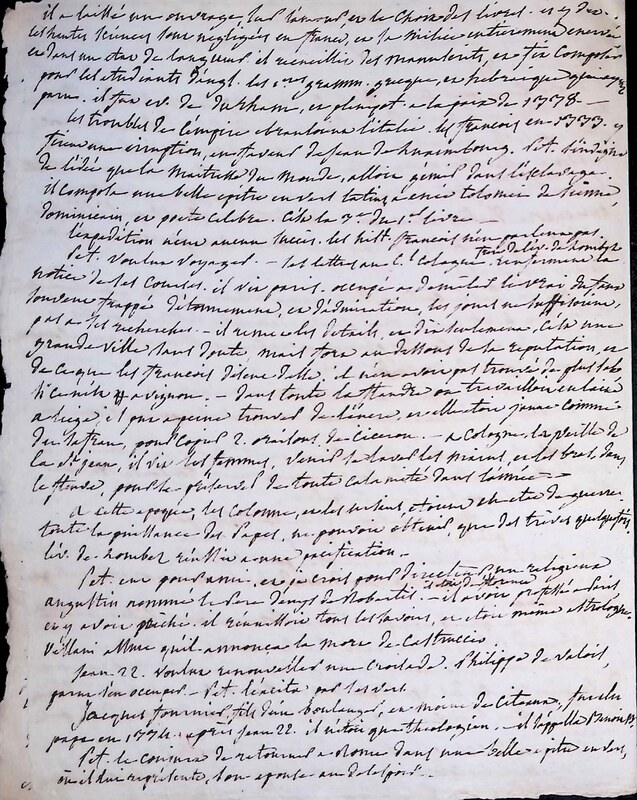 il a laissé un ouvrage, sur l'amour, et le choix des livres. et y dit
les hautes sciences sont négligées en france, et la milice entièrement énervée
et dans un état de langueur. il recueillit des manuscrits, et fit composer
pour les étudiants d'angl. les gramm. grecque, et hébraique
il fut ev. de durham, et plenipot. a la paix de
les troubles de l'empire italie. les francois en 1333. y
firent une irruption, en faveur de jean de Luxembourg. Pet. s'indigne
de l'idée que la maitresse du monde, alloit gémir dans l'esclavage.
il composa une belle epitre en vers latins a
dominicain, et poete célèbre. C'est la 3e du 1er livre
l'expédition n'eut aucun succès. les hist. francois n'en parlent pas.
Pet. voulut voyager. - ses lettres au Cl Colonne renferment la
notice de ses courses. il vit paris. occupé a demeler le vrai du faux
souvent frappé d'étonnement, et d'admiration, les jours ne suffisoient
pas a ses recherches. - il remet les details, et dit seulement, c'est une
grande ville sans doute, mais fort au dessous de sa reputation, et
de ce que les francois disent d'elle. il n'en avoit pas trouvé de plus sale
si ce n'est avignon. - dans toute la flandre on travailloit en laine
a liege, il put a peine trouver de l'encre, et elle etoit jaune comme
du safran, pour copier 2. oraisons, de Ciceron. - a Cologne, la veille de
la St jean, il vit les femmes, venir se laver les mains, et les bras, dans
le fleuve, pour se préserver de toute calamité dans l'année. -
a cette epoque, les Colonne, et les ursins, etoient en état de guerre.
toute la puissance des Papes, ne pouvoit obtenir que des trèves
l'év. de Lombez réussit a une pacification. -
Pet. eut pour ami, et je crois pour directeur un religieux
augustin nommé le Pere denys de Robertis. il avoit professé a Paris
et y avoit prêché. il réunissoit tous les savoirs, et etoit même astrologue.
Villani assure qu'il annonça la mort de Castruccio
jean 22. voulut renouveller une Croisade. Philippe de Valois,
parut s'en occuper - Pet. l'excita par ses vers.
Jacques fournier, fils d'un boulanger, et moine de Citeaux, fut elu
pape en 1334. après jean 22. il n'etoit que théologien. - il s'appella Benoit
Pet. le conjura de retourner a Rome dans une belle epitre en vers,
ou il lui représente, son epouse au desespoir. -